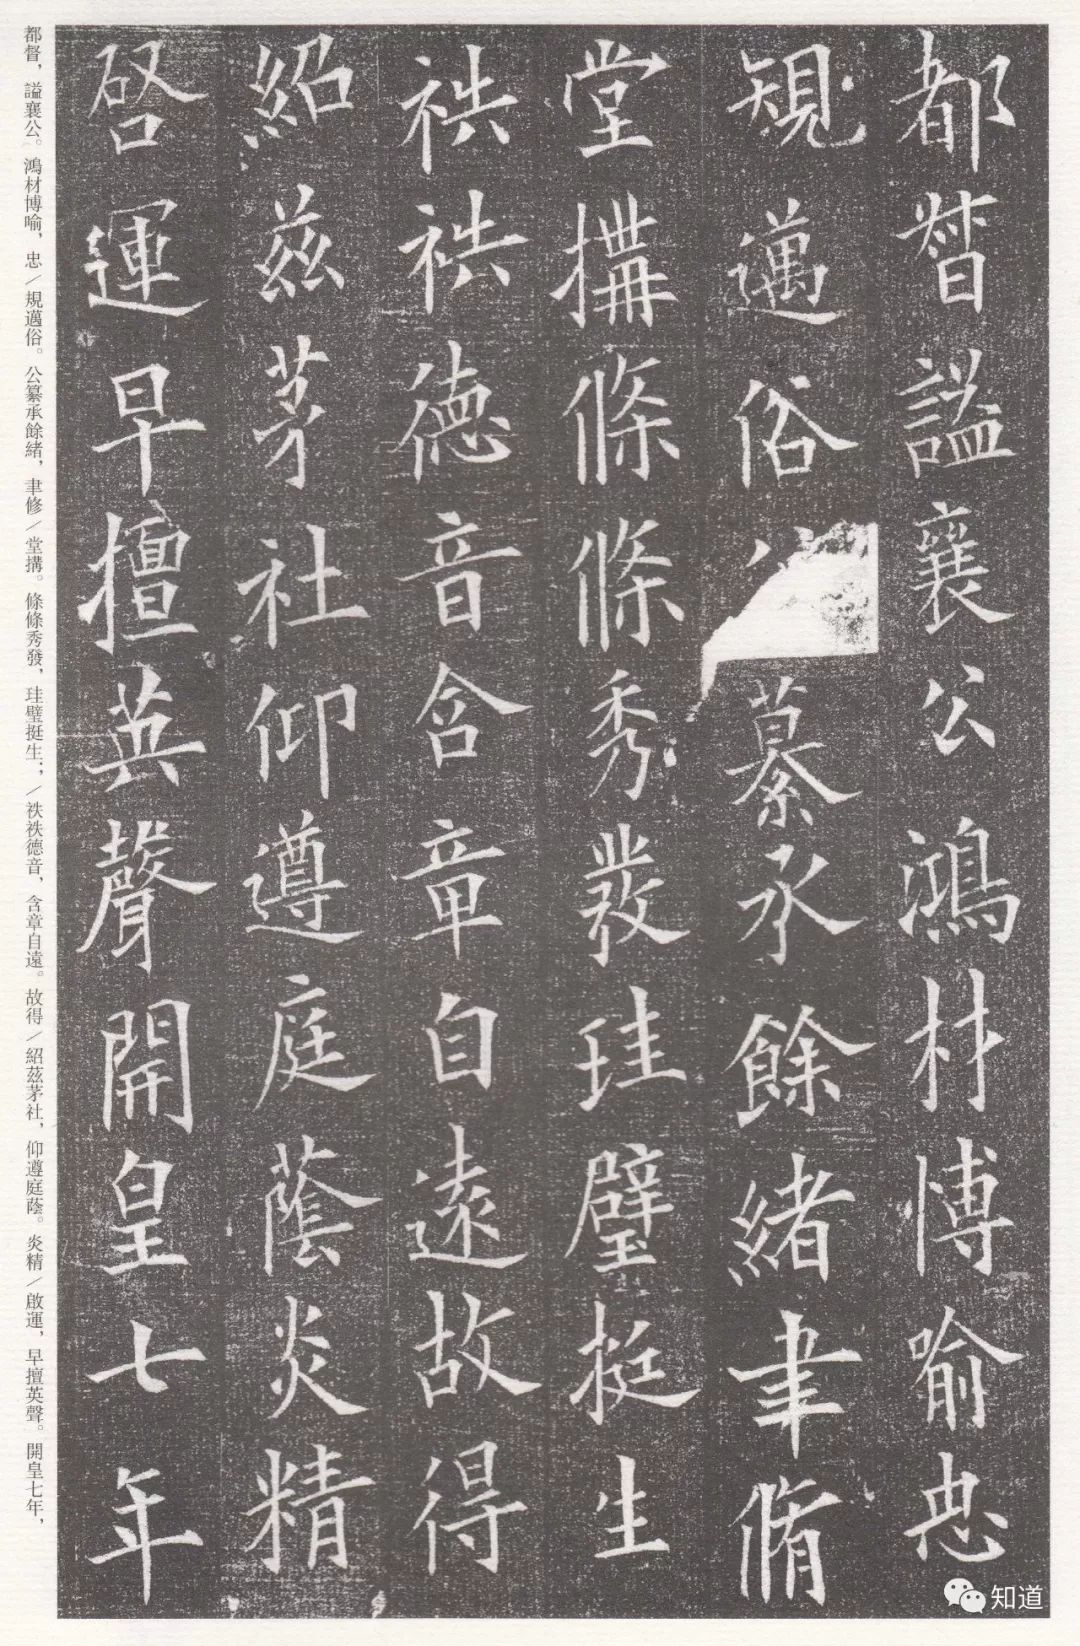 都督謚襄公鴻材博喻忠
規邁俗公纂承餘緒聿脩
堂搆條條秀發珪璧挺生
袟袟德音含章自遠故得
紹茲茅社仰遵庭蔭炎精
啓運早擅英聲開皇七年
都督，謚襄公。鴻材博喻，忠／規邁俗。公纂承餘緒，聿修／堂搆。條條秀發，珪璧挺生；／袟袟德音，含章自遠。故得／紹茲茅社，仰遵庭蔭。炎精／啟運，早擅英聲。開皇七年，
知道